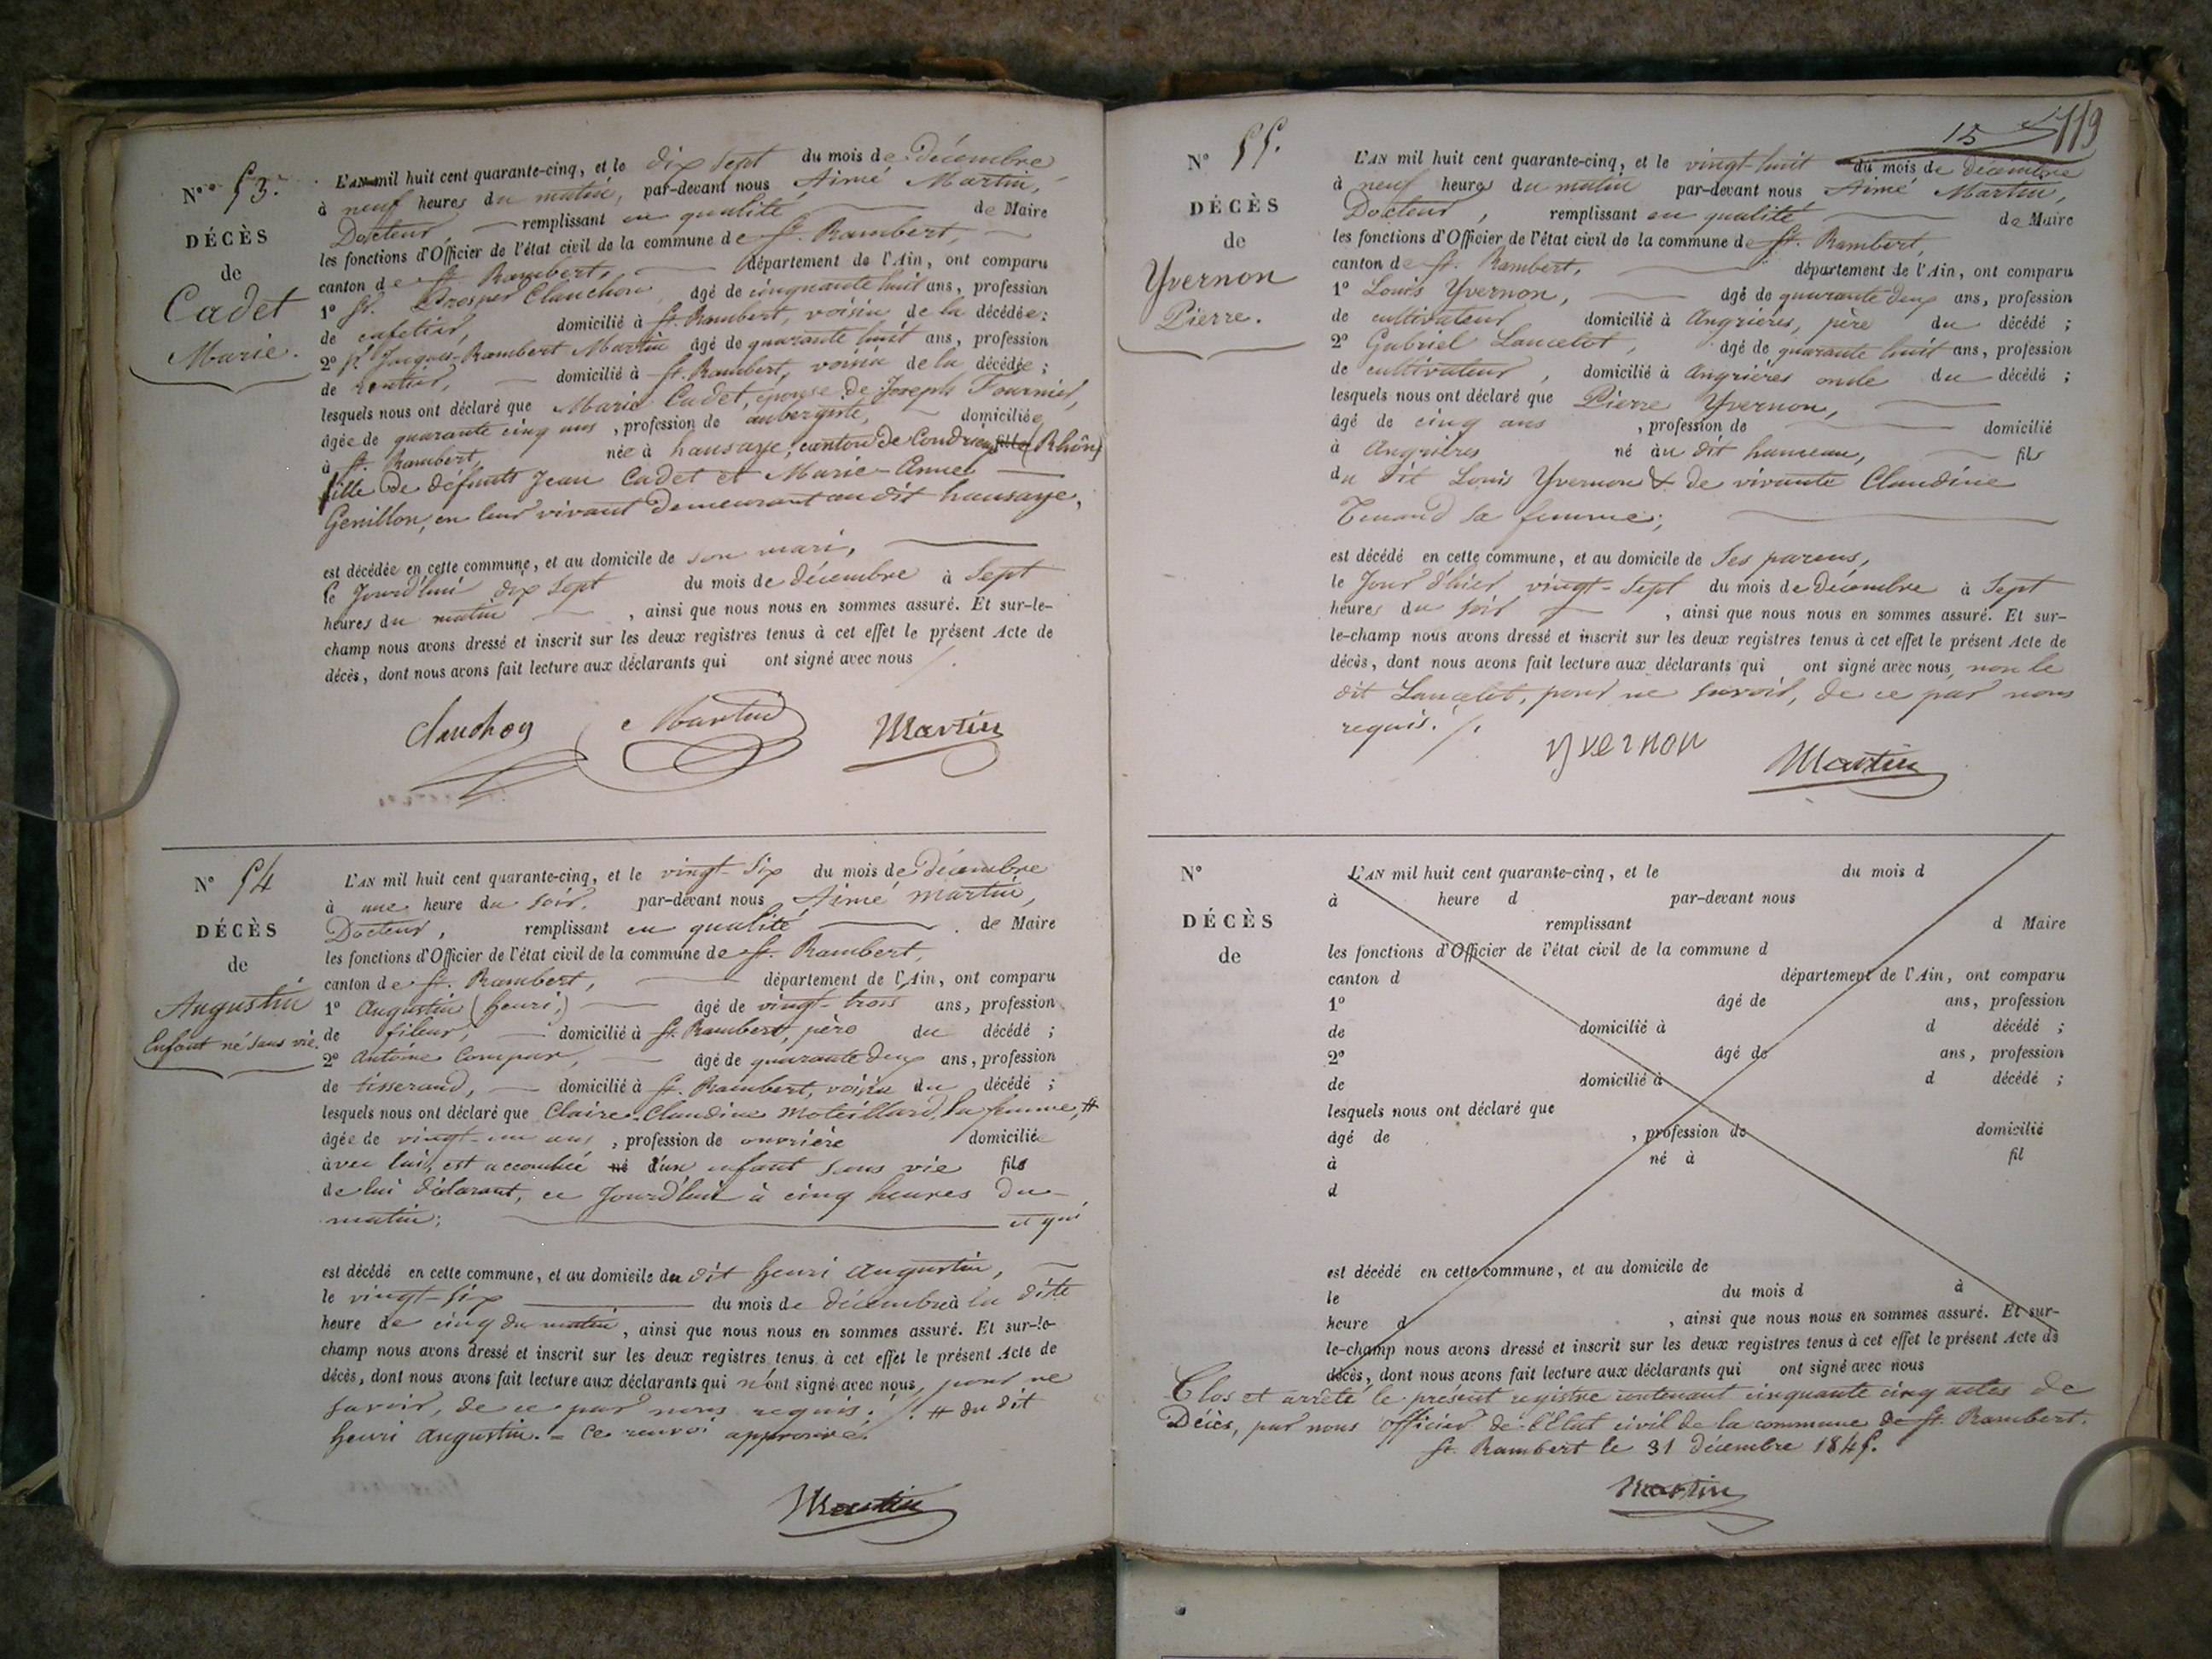 N° 53.
DÉCÈS
de
Cadet
Marie.
L'AN mil huit cent quarante-cinq, et le dix sept du mois de décembre
à neuf heures du matin, par-devant nous Aimé Martin,
Docteur, remplissant en qualité de Maire
les fonctions d'Officier de l'état civil de la commune de St. Rambert,
canton de St. Rambert, département de l'Ain, ont comparu
1° Sr. Prosper Clauchon, âgé de cinquante huit ans, profession
de cafetier, domicilié à St. Rambert, voisin de la décédée;
2° Sr. Jacques-Rambert Martin âgé de quarante huit ans, profession
de rentier, domicilié à St. Rambert, voisin de la décédée;
lesquels nous ont déclaré que Marie Cadet, épouse de Joseph Fournier,
âgée de quarante cinq ans, profession de aubergiste, domiciliée
à St. Rambert née à hausaye, canton de Condrieu fille (Rhône)
fille de défunts Jean Cadet et Marie-Annee
Genillon, en leur vivant demeurant au dit hausaye,
est décédée en cette commune, et au domicile de son mari,
le Jourd'hui dix sept du mois de décembre à Sept
heures du matin, ainsi que nous nous en sommes assuré. Et sur-le-
champ nous avons dressé et inscrit sur les deux registres tenus à cet effet le présent Acte de
décès, dont nous avons fait lecture aux déclarants qui ont signé avec nous /.
Clauchon Martin Martin
N° 54
DÉCÈS
de
Augustin
Enfant né sans vie.
L'AN mil huit cent quarante-cinq, et le vingt-Six du mois de Décembre
à une heure du soir, par-devant nous Aimé Martin,
Docteur, remplissant en qualité de Maire
les fonctions d'Officier de l'état civil de la commune de St. Rambert,
canton de St. Rambert, département de l'Ain, ont comparu
1° Augustin (henri,) âgé de vingt-trois ans, profession
de fileur, domicilié à St. Rambert, père du décédé;
2° Antoine Compar, âgé de quarante deux ans, profession
de tisserand, domicilié à St. Rambert, voisin du décédé;
lesquels nous ont déclaré que Claire-Claudine Moteillard, la femme, #
âgée de vingt-un ans, profession de ouvrière domiciliée
avec lui, est accouchée né d'un enfant sans vie fils
de lui déclarant, ce Jourd'hui à cinq heures du
matin; et qui
est décédé en cette commune, et au domicile du dit henri Augustin,
le vingt-six du mois de décembre à la dite
heure de cinq du matin, ainsi que nous nous en sommes assuré. Et sur-le-
champ nous avons dressé et inscrit sur les deux registres tenus à cet effet le présent Acte de
décès, dont nous avons fait lecture aux déclarants qui n'ont signé avec nous, pour ne
savoir, de ce par nous requis. /. # du dit
henri Augustin. = Ce renvoi approuvé.
Martin
15 119
N° 55.
DÉCÈS
de
Yvernon
Pierre.
L'AN mil huit cent quarante-cinq, et le vingt-huit du mois de décembre
à neuf heures du matin par-devant nous Aimé Martin,
Docteur, remplissant en qualité de Maire
les fonctions d'Officier de l'état civil de la commune de St. Rambert,
canton de St. Rambert, département de l'Ain, ont comparu
1° Louis Yvernon, âgé de quarante deux ans, profession
de cultivateur, domicilié à Angrières, père du décédé;
2° Gabriel Lancelot, âgé de quarante huit ans, profession
de cultivateur, domicilié à Angrières oncle du décédé;
lesquels nous ont déclaré que Pierre Yvernon,
âgé de cinq ans, profession de domicilié
à Angrières né au dit hameau, fils
du dit Louis Yvernon & de vivante Claudine
Tenand sa femme;
est décédé en cette commune, et au domicile de Ses parens,
le Jour d'hier, vingt-Sept du mois de Décembre à Sept
heures du soir, ainsi que nous nous en sommes assuré. Et sur-
le-champ nous avons dressé et inscrit sur les deux registres tenus à cet effet le présent Acte de
décès, dont nous avons fait lecture aux déclarants qui ont signé avec nous, non le
dit Lancelot, pour ne savoir, de ce par nous
requis. /.
yvernon Martin
N°
DÉCÈS
de
L'AN mil huit cent quarante-cinq, et le du mois d
à heure d par-devant nous
remplissant d Maire
les fonctions d'Officier de l'état civil de la commune d
canton d département de l'Ain, ont comparu
1° âgé de ans, profession
de domicilié à d décédé;
2° âgé de ans, profession
de domicilié à d décédé;
lesquels nous ont déclaré que
âgé de , profession de domicilié
à né à fil
d
est décédé en cette commune, et au domicile de
le du mois d à
heure d , ainsi que nous nous en sommes assuré. Et sur-
le-champ nous avons dressé et inscrit sur les deux registres tenus à cet effet le présent Acte de
décès, dont nous avons fait lecture aux déclarants qui ont signé avec nous
Clos et arrêté le présent registre contenant cinquante cinq actes de
Décès, par nous officier de l'Etat civil de la commune de St. Rambert.
St. Rambert le 31 décembre 1845.
Martin